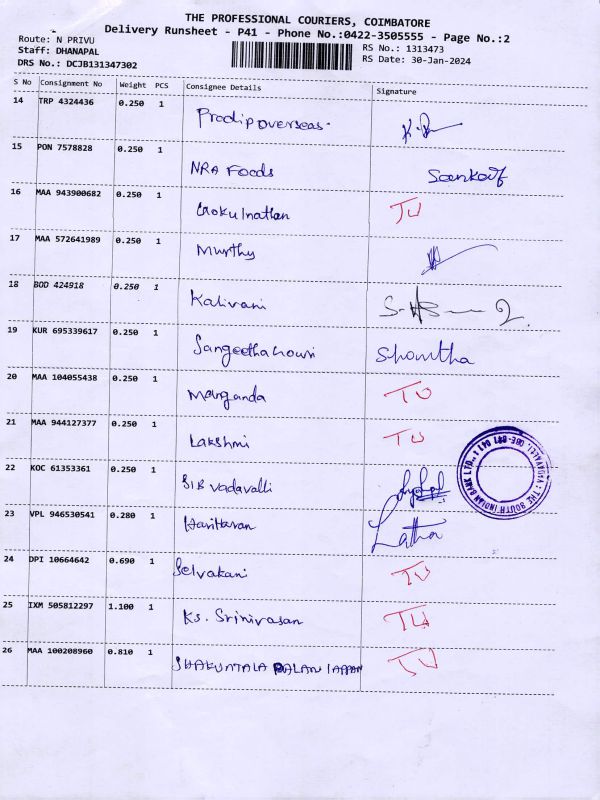 THE PROFESSIONAL COURIERS, COIMBATORE
Delivery Runsheet - P41 - Phone No.:0422-3505555 - Page No.:2
Route: N PRIVU
RS No.: 1313473
Staff: DHANAPAL
RS Date: 30-Jan-2024
DRS No.: DCJB131347302
S No Consignment No Weight PCS Consignee Details Signature
14 TRP 4324436 0.250 1 Pradip overseas.
15 PON 7578828 0.250 1 NRA Foods
16 MAA 943900682 0.250 1 Gokulnathan TU
17 MAA 572641989 0.250 1 Murthy
18 BOD 424918 0.250 1 Kalivani
19 KUR 695339617 0.250 1 Sangeetha Shantha
20 MAA 104055438 0.250 1 TU
21 MAA 944127377 0.250 1 Lakshmi TU
22 KOC 61353361 0.250 1 SIB vadavalli
THE SOUTH INDIAN BANK LTD.
23 VPL 946530541 0.280 1 Hariharan Latha
24 DPI 10664642 0.690 1 Selvakani TU
25 IXM 505812297 1.100 1 Ks. Srinivasan
26 MAA 100208960 0.810 1 SHAKUNTALA TU